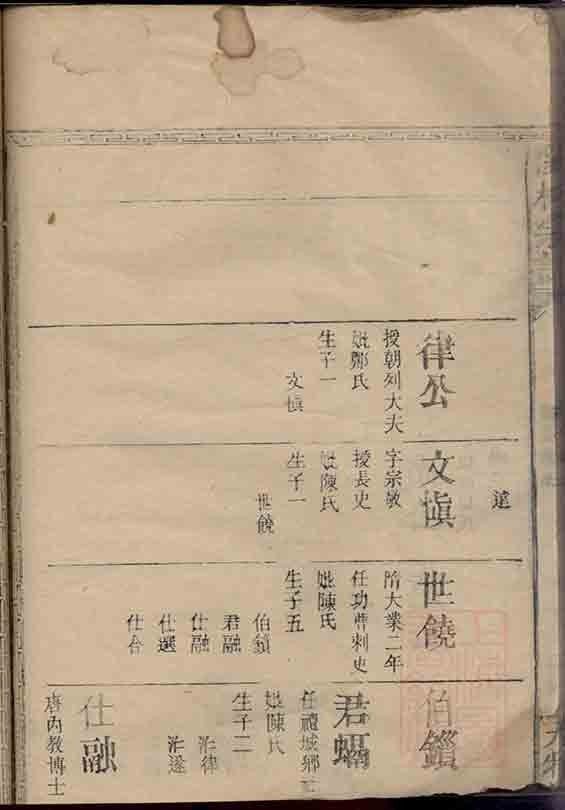 達
律公
授朝列大夫
妣鄭氏
生子一
文愼
文愼
字宗敬
授長史
妣陳氏
生子一
世饒
世饒
隋大業二年
任功曹刺史
妣陳氏
生子五
伯鎮
君融
仕融
仕選
仕台
伯鎰
君
任禮城鄉
妣陳氏
生子二
茫律
茫遂
仕融
唐內教博士